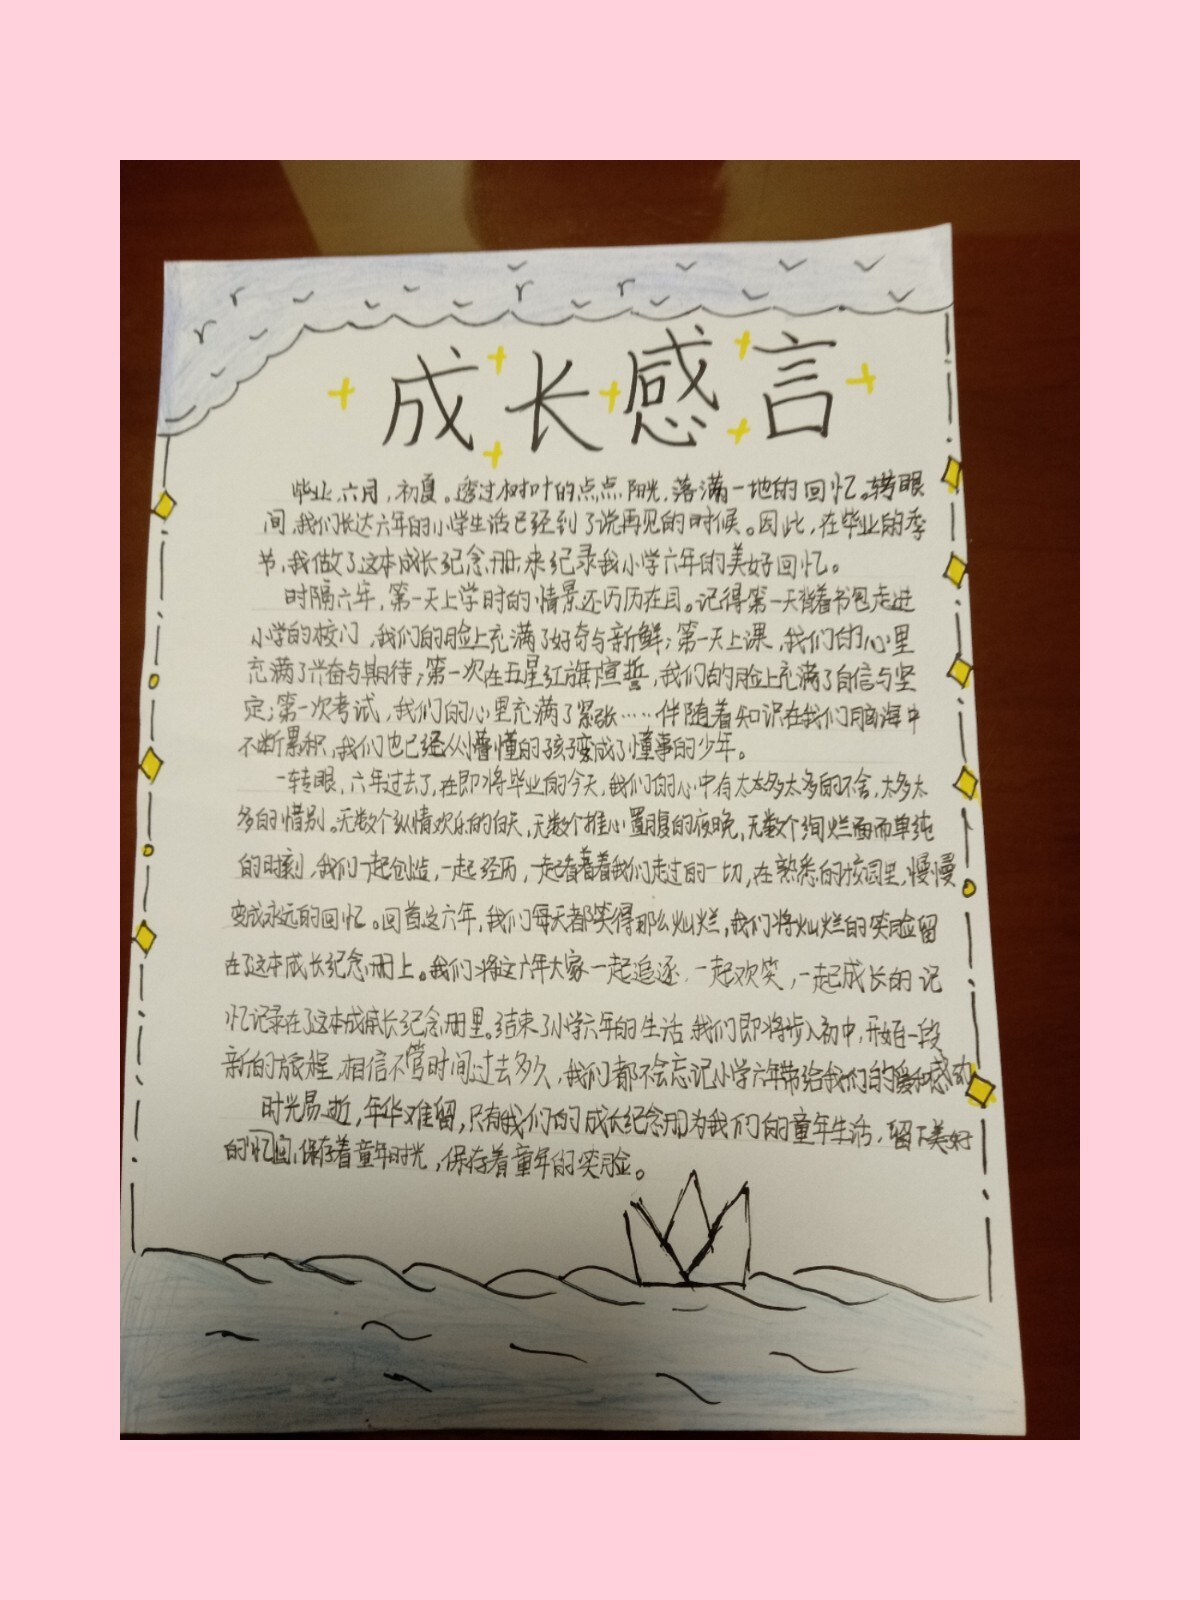 成长感言
毕业,六月,初夏。透过树叶的点点阳光,落满一地的回忆。转眼
间,我们长达六年的小学生活已经到了说再见的时候。因此,在毕业的季
节,我做了这本成长纪念册,来纪录我小学六年的美好回忆。
时隔六年,第一天上学时的情景还历历在目。记得第一天背着书包走进
小学的校门,我们的脸上充满了好奇与新鲜;第一天上课,我们的心里
充满了兴奋与期待;第一次在五星红旗下宣誓,我们的脸上充满了自信与坚
定;第一次考试,我们的心里充满了紧张……伴随着知识在我们脑海中
不断累积,我们也已经从懵懂的孩子变成了懂事的少年。
一转眼,六年过去了,在即将毕业的今天,我们的心中有太多太多的不舍,太多太
多的惜别。无数个纵情欢乐的白天,无数个推心置腹的夜晚,无数个绚烂而单纯
的时刻,我们一起创造,一起经历,一起看着我们走过的一切,在熟悉的校园里,慢慢
变成永远的回忆。回首这六年,我们每天都笑得那么灿烂,我们将灿烂的笑脸留
在了这本成长纪念册上。我们将这六年大家一起追逐,一起欢笑,一起成长的记
忆记录在了这本成长纪念册里。结束了小学六年的生活,我们即将步入初中,开始一段
新的旅程,相信不管时间过去多久,我们都不会忘记小学六年带给我们的温暖和感动
时光易逝,年华难留,只有我们的成长纪念册为我们的童年生活,留下美好
的回忆,保存着童年时光,保存着童年的笑脸。